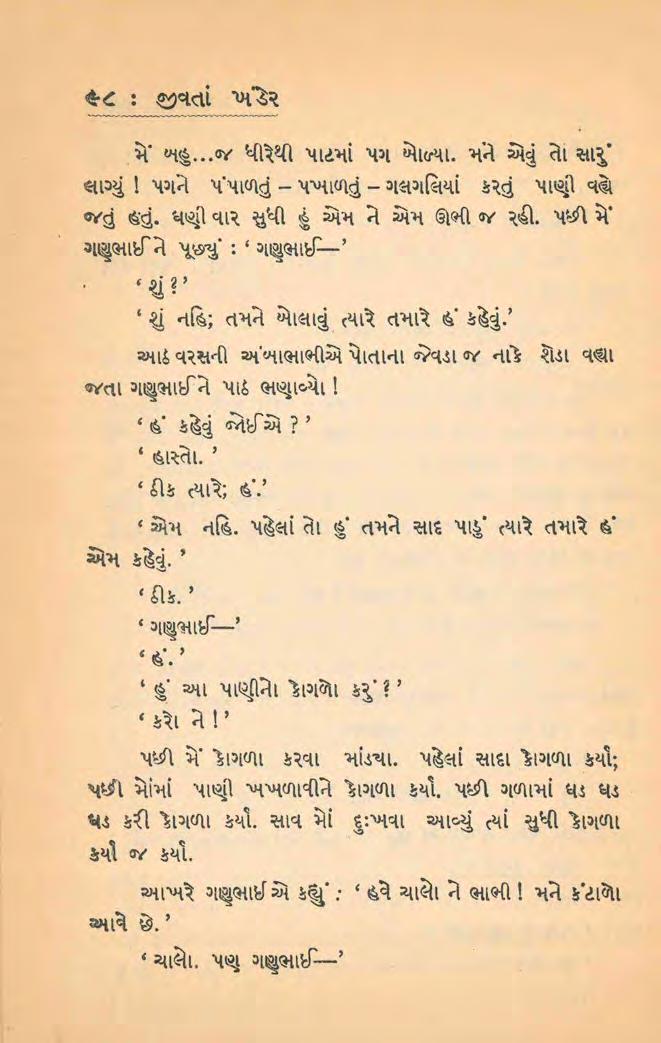 ૯૮ : જીવતાં ખંડેર
મેં બહુ...જ ધીરેથી પાટમાં પગ બોળ્યા. મને એવું તો સારું
લાગ્યું ! પગને પંપાળતું – પખાળતું – ગલગલિયાં કરતું પાણી વહ્યે
જતું હતું. ઘણી વાર સુધી હું એમ ને એમ ઊભી જ રહી. પછી મેં
ગણુભાઈને પૂછ્યું : ‘ ગણુભાઈ—’
‘ શું ?’
‘ શું નહિ; તમને બોલાવું ત્યારે તમારે હં કહેવું.’
આઠ વરસની અંબાભાભીએ પોતાના જેવડા જ નાકે શેડા વહ્યા
જતા ગણુભાઈને પાઠ ભણાવ્યો !
‘ હં કહેવું જોઈએ ? ’
‘ હાસ્તો. ’
‘ ઠીક ત્યારે; હં.’
‘ એમ નહિ. પહેલાં તો હું તમને સાદ પાડું ત્યારે તમારે હં
એમ કહેવું. ’
‘ ઠીક. ’
‘ ગણુભાઈ—’
‘ હં. ’
‘ હું આ પાણીનો કોગળો કરું ? ’
‘ કરો ને ! ’
પછી મેં કોગળા કરવા માંડ્યા. પહેલાં સાદા કોગળા કર્યા;
પછી મોંમાં પાણી ખખળાવીને કોગળા કર્યા. પછી ગળામાં ઘડ ઘડ
ઘડ કરી કોગળા કર્યા. સાવ મોં દુઃખવા આવ્યું ત્યાં સુધી કોગળા
કર્યા જ કર્યા.
આખરે ગણુભાઈએ કહ્યું : ‘ હવે ચાલો ને ભાભી ! મને કંટાળો
આવે છે. ’
‘ ચાલો. પણ ગણુભાઈ—’